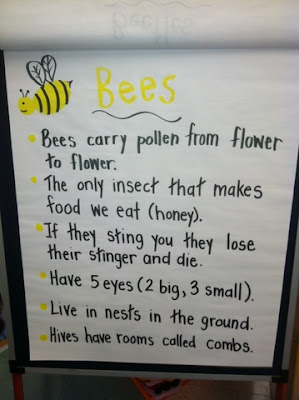 Beetles
Bees
Bees carry pollen from flower
to flower.
The only insect that makes
food we eat (honey).
If they sting you they lose
their stinger and die.
Have 5 eyes (2 big, 3 small).
Live in nests in the ground.
Hives have rooms called combs.